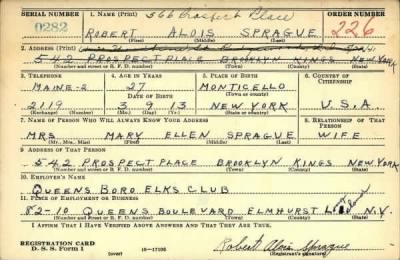 566 Prospect Place
SERIAL NUMBER 1. NAME (Print) ORDER NUMBER
0282 ROBERT ALOIS SPRAGUE 226
(First) (Middle) (Last)
2. ADDRESS (Print)
542 PROSPECT PLACE BROOKLYN KINGS NEW YORK
(Number and street or R. F. D. number) (Town) (County) (State)
3. TELEPHONE 4. AGE IN YEARS 5. PLACE OF BIRTH 6. COUNTRY OF CITIZENSHIP
MAINE-2 27 MONTICELLO
(Exchange) DATE OF BIRTH (Town or county)
2119 3 9 13 NEW YORK U.S.A.
(Number) (Mo.) (Day) (Yr.) (State or country)
7. NAME OF PERSON WHO WILL ALWAYS KNOW YOUR ADDRESS 8. RELATIONSHIP OF THAT PERSON
MRS MARY ELLEN SPRAGUE WIFE
(Mr., Mrs., Miss) (First) (Middle) (Last)
9. ADDRESS OF THAT PERSON
542 PROSPECT PLACE BROOKLYN KINGS NEW YORK
(Number and street or R. F. D. number) (Town) (County) (State)
10. EMPLOYER'S NAME
QUEENS BORO ELKS CLUB
11. PLACE OF EMPLOYMENT OR BUSINESS
82-10 QUEENS BOULEVARD ELMHURST N.Y.
(Number and street or R. F. D. number) (Town) (County) (State)
I AFFIRM THAT I HAVE VERIFIED ABOVE ANSWERS AND THAT THEY ARE TRUE.
REGISTRATION CARD
D. S. S. FORM 1 (over) 16-17105 Robert Alois Sprague
(Registrant's signature)